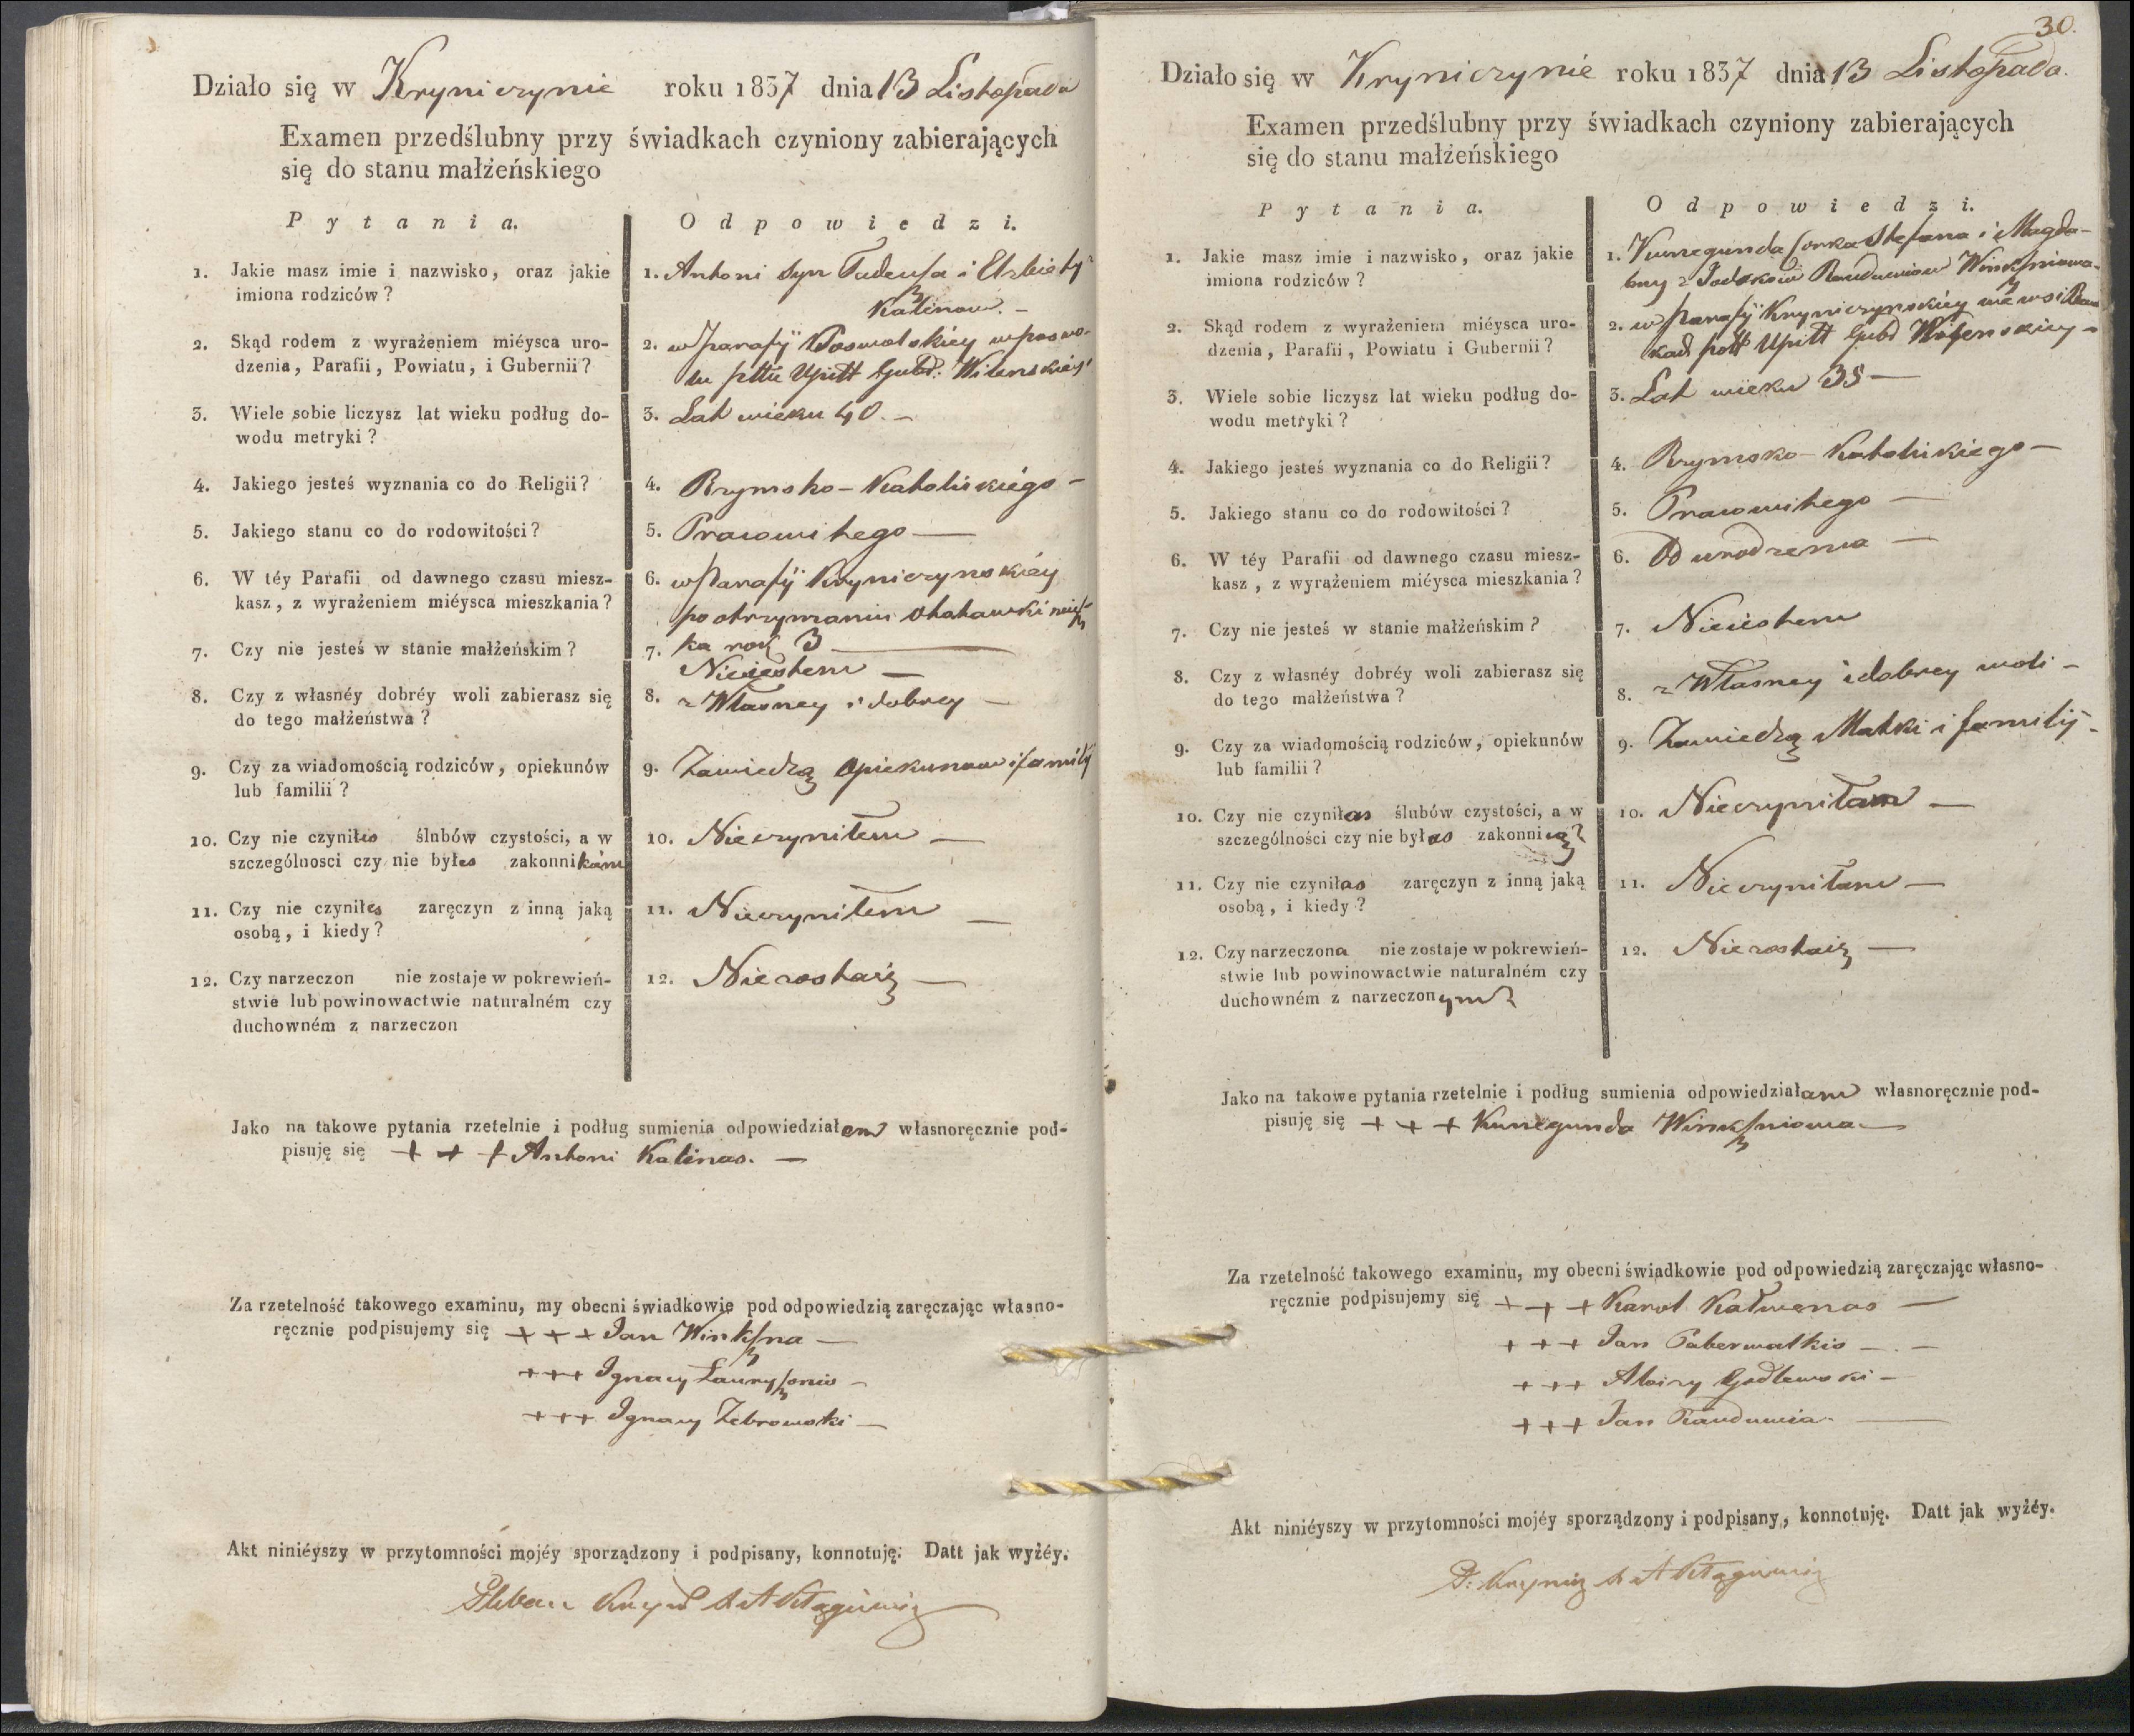 Działo się w Kryniczynie roku 1837 dnia 13 Listopada
Examen przedślubny przy świadkach czyniony zabierających
się do stanu małżeńskiego
Pytania.
Odpowiedzi.
1. Jakie masz imie i nazwisko, oraz jakie
imiona rodziców?
1. Antoni Syn Tadeusza i Elzbiety
Kalinow. –
2. Skąd rodem z wyrażeniem miéysca uro-
dzenia, Parafii, Powiatu, i Gubernii?
2. w Parafÿ Poswolskiey w poswo-
lu pttu Upitt Gubr. Wilenskiey
3. Wiele sobie liczysz lat wieku podług do-
wodu metryki?
3. Lat wieku 40. –
4. Jakiego jesteś wyznania co do Religii?
4. Rzymsko – Katolickiego –
5. Jakiego stanu co do rodowitości?
5. Prawowitego –
6. W téy Parafii od dawnego czasu miesz-
kasz, z wyrażeniem miéysca mieszkania?
6. w Parafÿ Kryniczynskiey
po otrzymaniu miesz-
ka rok 3 –
7. Czy nie jesteś w stanie małżeńskim?
7. Nieiestem –
8. Czy z własnéy dobréy woli zabierasz się
do tego małżeństwa?
8. z Własney i dobrey –
9. Czy za wiadomością rodziców, opiekunów
lub familii?
9. Zawiedzą Opiekunow i familÿ
10. Czy nie czyniłes ślubów czystości, a w
szczególnosci czy nie byłes zakonnikam
10. Nieczyniłem –
11. Czy nie czyniłes zaręczyn z inną jaką
osobą, i kiedy?
11. Nieczyniłem –
12. Czy narzeczon nie zostaje w pokrewień-
stwie lub powinowactwie naturalném czy
duchowném z narzeczon
12. Niezostaię –
Jako na takowe pytania rzetelnie i podług sumienia odpowiedziałem własnoręcznie pod-
pisuję się + + + Antoni Kalinas. –
Za rzetelność takowego examinu, my obecni świadkowie pod odpowiedzią zaręczając własno-
ręcznie podpisujemy się + + + Jan Winkszna –
+++ Ignacy Lauryszonis –
+++ Ignacy Zebrowski –
Akt niniéyszy w przytomności mojéy sporządzony i podpisany, konnotuję. Datt jak wyżéy.
30.
Działo się w Kryniczynie roku 1837 dnia 13 Listopada.
Examen przedślubny przy świadkach czyniony zabierających
się do stanu małżeńskiego
Pytania.
Odpowiedzi.
1. Jakie masz imie i nazwisko, oraz jakie
imiona rodziców?
1. Kunegunda Corka Stefana i Magda-
leny z Winkszniowa-
2. Skąd rodem z wyrażeniem miéysca uro-
dzenia, Parafii, Powiatu i Gubernii?
2. w Parafÿ Kryniczynskiey we wsi
pott Upitt Gubr Wilenskiey –
3. Wiele sobie liczysz lat wieku podług do-
wodu metryki?
3. Lat wieku 35 –
4. Jakiego jesteś wyznania co do Religii?
4. Rzymsko – Katolickiego –
5. Jakiego stanu co do rodowitości?
5. Prawowitego –
6. W téy Parafii od dawnego czasu miesz-
kasz, z wyrażeniem miéysca mieszkania?
6. Od urodzenia –
7. Czy nie jesteś w stanie małżeńskim?
7. Nieiestem
8. Czy z własnéy dobréy woli zabierasz się
do tego małżeństwa?
8. z Własney i dobrey woli –
9. Czy za wiadomością rodziców, opiekunów
lub familii?
9. Zawiedzą Matki i familÿ –
10. Czy nie czyniłas ślubów czystości, a w
szczególności czy nie byłas zakonnicą?
10. Nieczyniłam –
11. Czy nie czyniłas zaręczyn z inną jaką
osobą, i kiedy?
11. Nieczyniłam –
12. Czy narzeczona nie zostaje w pokrewień-
stwie lub powinowactwie naturalném czy
duchowném z narzeczonym?
12. Niezostaię –
Jako na takowe pytania rzetelnie i podług sumienia odpowiedziałam własnoręcznie pod-
pisuję się + + + Kunegunda Winkszniowa –
Za rzetelność takowego examinu, my obecni świadkowie pod odpowiedzią zaręczając własno-
ręcznie podpisujemy się + + + Karol Kałwenas –
+ + + Jan Paberwalkis – . –
+ + + Aloizy Godlewski –
+ + + Jan Rauduwia. –
Akt niniéyszy w przytomności mojéy sporządzony i podpisany, konnotuję. Datt jak wyżéy.